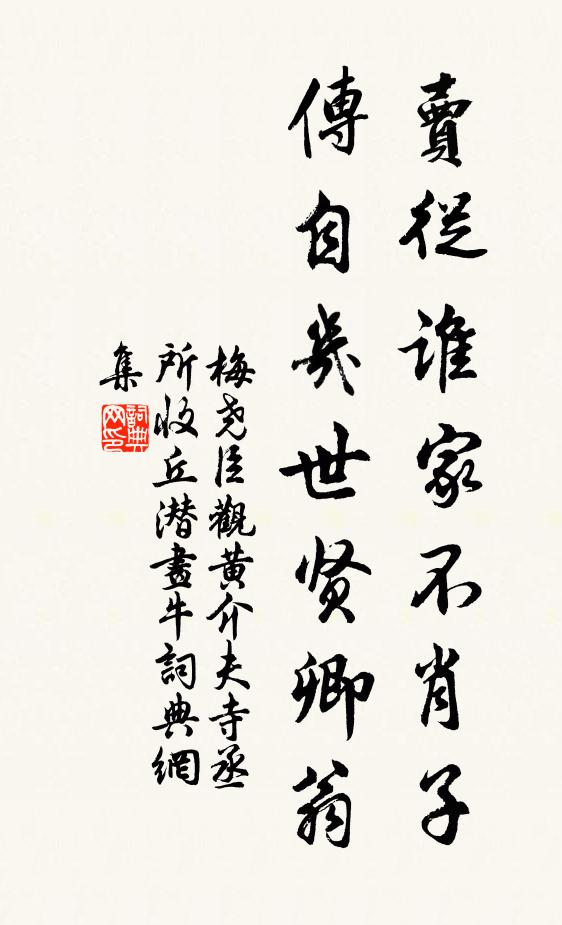 賣從誰家不肖子
傳自幾世贤卿翁
梅尧臣觀黄介夫寺丞
所收丘潜畫牛詞典網
集
詞典
网印